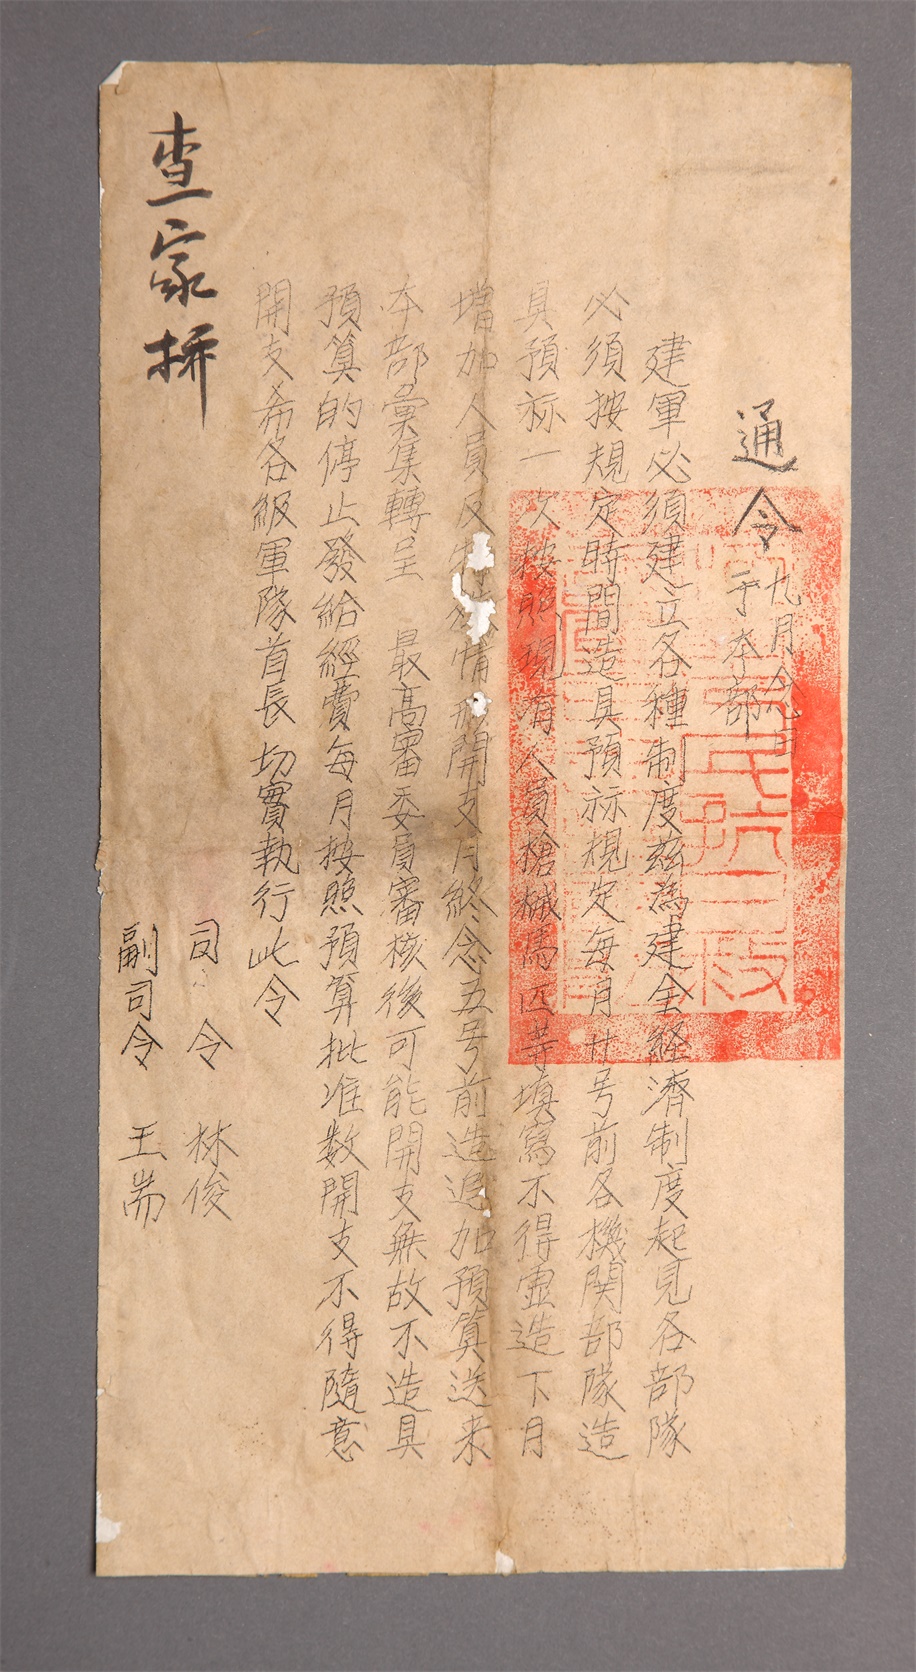 通令
九月念日
于本部
建軍必須建立各種制度茲為建全経濟制度起見各部隊
必須按規定時間造具預祘規定每月廿号前各機関部隊造
具預祘一次按照現有人員槍械馬匹等填寫不得虛造下月
增加人員及特情形開支月終念五号前造追加預算送来
本部彙集轉呈 最高審委員審核後可能開支無故不造具
預算的停止發給經費每月按照預算批准数開支不得隨意
開支希各級軍隊首長切實執行此令
司令 林俊
副司令 王耑
查家拼